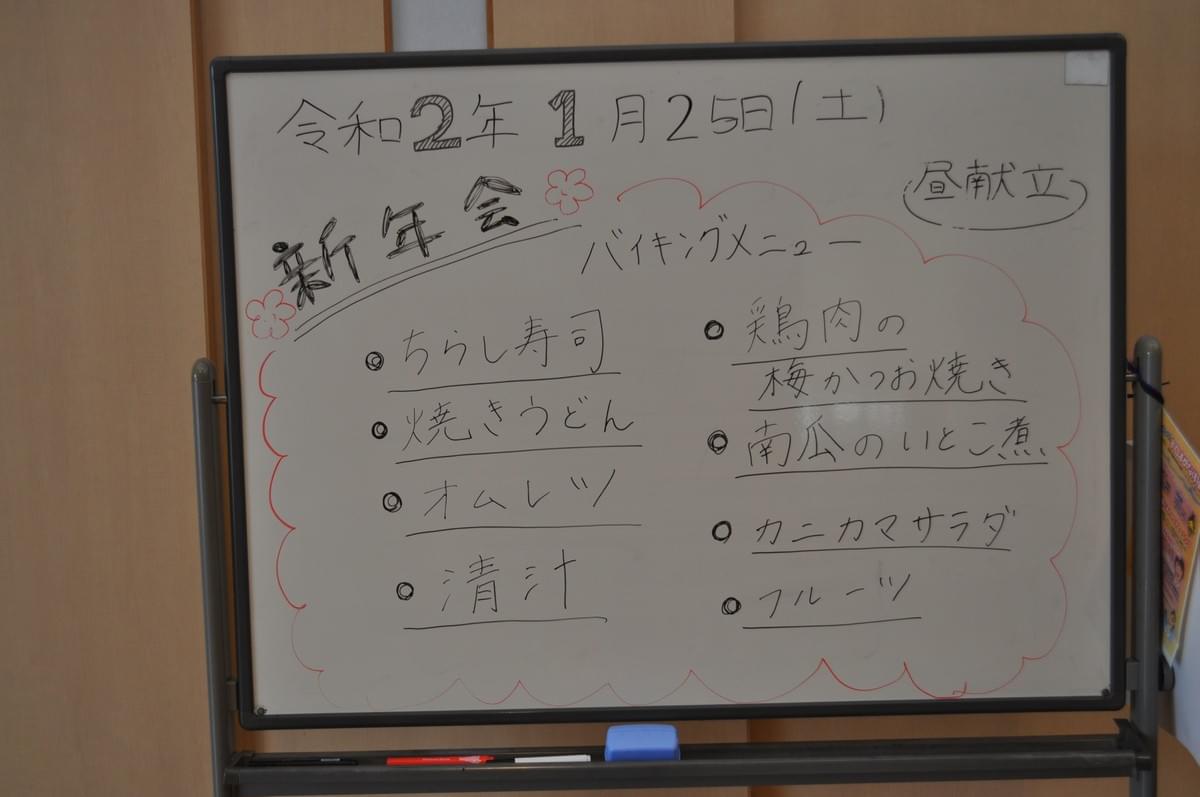 令和2年 1月25日(土)
昼献立
新年会
バイキングメニュー
ちらし寿司
焼きうどん
オムレツ
清汁
鶏肉の
梅かつお焼き
南瓜のいとこ煮
カニカマサラダ
フルーツ